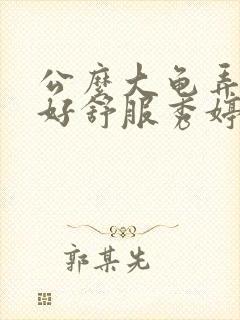 公麽大龟弄
好舒服秀婷
郭某先